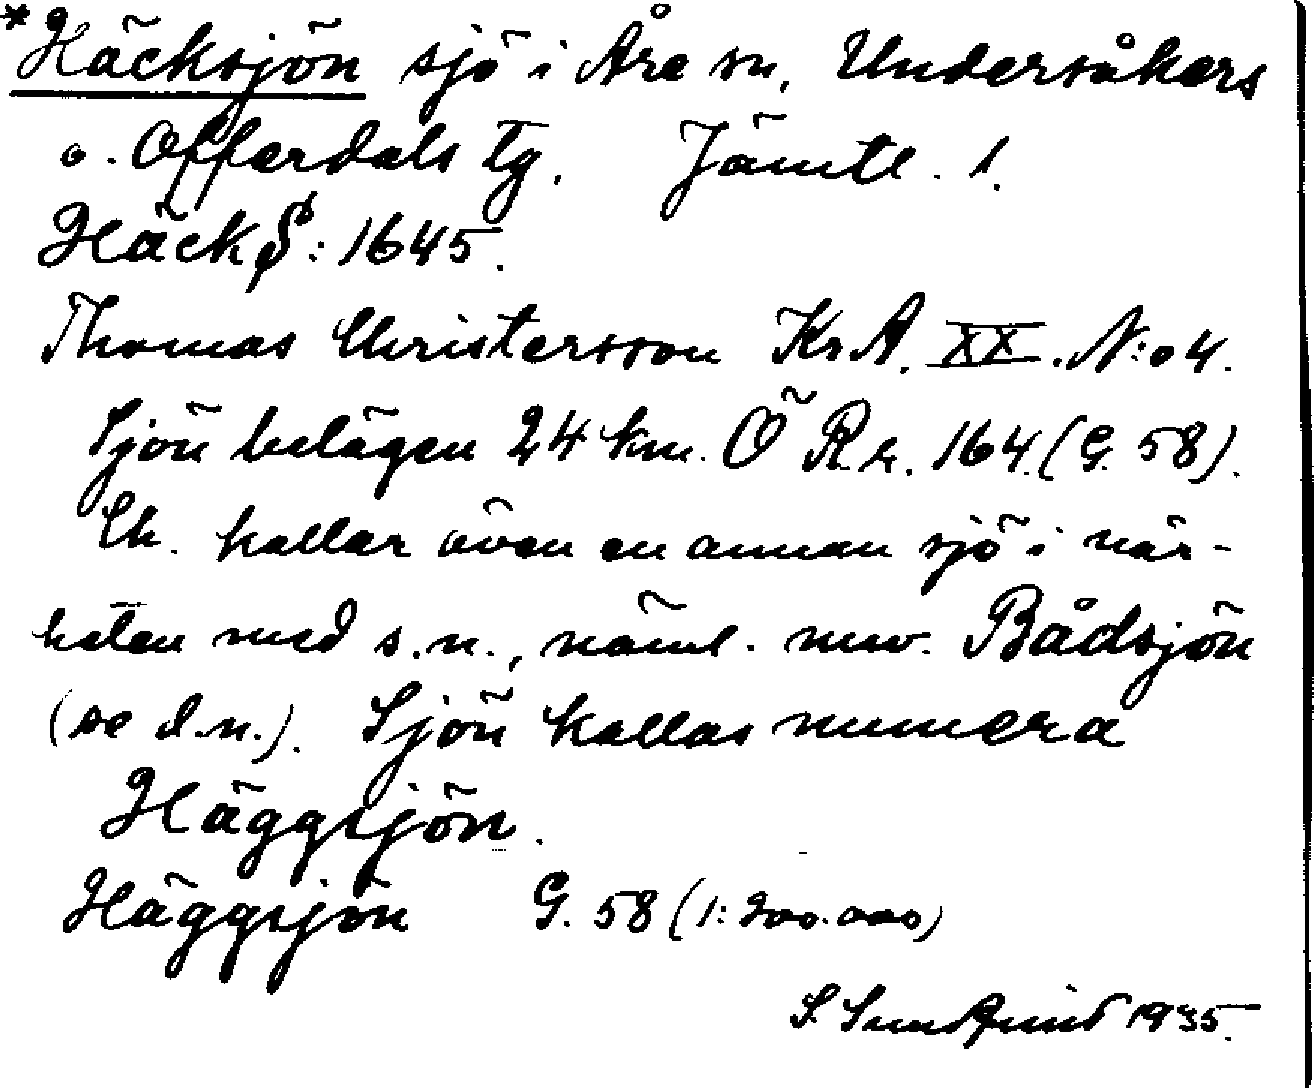 *Häcksjön sjö i Åre sn, Undersåkers
o. Offerdals tg. Jämtl. l.
Häck$: 1645.
Thomas Christersson KrA. XX. N:o 4.
Sjön belägen 24 km. Ö Rr. 164. (G. 58).
Ch. kallar även en annan sjö i när-
heten med s.n., näml. nuv. Bådsjön
(se d.n.). Sjön kallas numera
Häggsjön.
Häggsjön G. 58 (1:200.000)
S. Sundquist 1935.